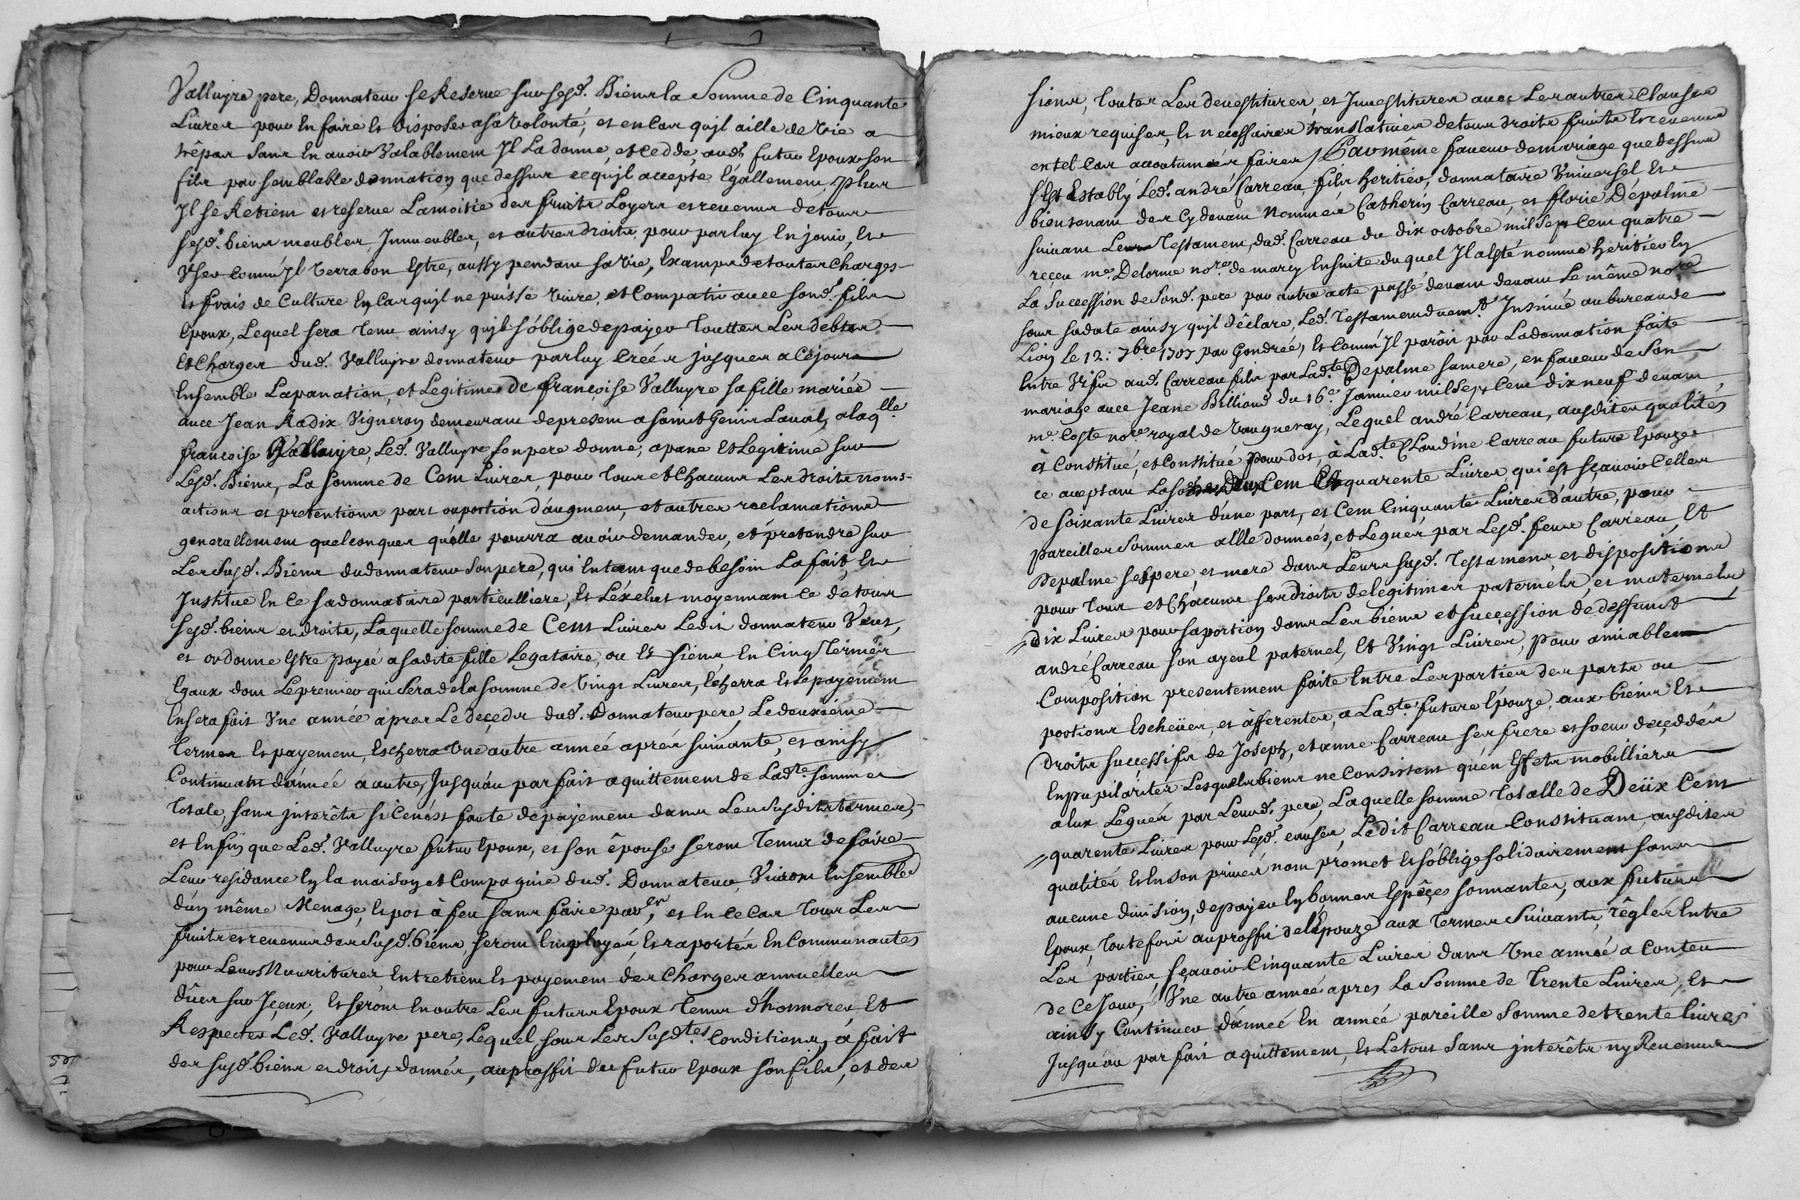 Valluyre pere, Donnateur se Reserve sur sesd. Biens la Somme de Cinquante
Livres pour en faire et disposer a sa volonté, et en cas quil aille de vie a
trêpas sans en avoir valablement Il La donne, et cedde, aud. futur Epoux son
fils par semblable donnation que dessus ce quil accepte Egallement, plus
Il se Retient et reserve La moitie des fruits Loyers et revenus de tous
sesd. biens meubles, Immeubles, et autres droits, pour par luy En jouir, Et
User comm'Il verra bon Estre, aussy pendant sa vie, Exampt de toutes charges
et frais de Culture En cas quil ne puisse vivre, et Compatir avec sond. fils
Epoux, Lequel sera Tenu ainsy quil s'oblige de payer Touttes Les debtes
et Charges dud. Valluyre donnateur par luy Creés jusques a Cejour
Ensemble L'apanation, et Legitimes de francoise Valluyre sa fille mariée
avec Jean Radix Vigneron demeurant de present a saint Genis Laval, a laqlle
francoise Valluyre, Led. Valluyre son pere donne, apane et Legitime sur
Lesd. Biens, La somme de Cent Livres, pour Tous et Chacuns Les droits noms
actions et pretentions part ou portion d'augment, et autres reclamations
generallement quelconques quelle pourra avoir demander, et prétendre sur
Les susd. Biens du donnateur son pere, qui En tant que de besoin La fait, Et
Institue En Ce sa donnataire particulliere, Et L'éxclus moyennant ce de tous
sesd. biens et droits, Laquelle somme de Cent Livres Ledit donnateur Veut,
et ordonne Estre payée a sadite fille Legataire, ou Et siens En Cinq Termes
Egaux dont Le premier qui Sera de la somme de vingt Livres, Echerra Et Le payement
En sera fait Une année apres Le decedz dud. Donnateur pere, Le deuxiéme
Termes Et payement, Escherra une autre année aprés suivante, et ainsy
Continuant d'année a autre, Jusqu'au parfait aquittement de Ladte. somme
Totale, sans interêts si Cen'est faute de payement dans Les susdits termes,
et Enfin que Led. Valluyre futur Epoux, et son êpouse seront Tenus de faire
Leur residance En la maison et Compagnie dud. Donnateur, Vivront Ensemble
d'un même Menage, Et pot à feu sans faire part, et En ce Cas Tous Les
fruits et revenus des Susd. biens seront Employés, Et raportés En Communautés
pour Leurs Nourritures Entretiens Et payement des Charges annuelles
dûes sur Iceux, Et seront En outre Les futurs Epoux Tenus d'honnorer, Et
Respecter Led. Valluyre pere, Lequel, sous Les Susdtes. Conditions, á fait
des susd. biens et droits donnés, au proffit du futur Epoux son fils, et des
siens, toutes Les devestitures, et Investitures avec Les autres Clauses
mieux requises, Et necessaires translatives de tous droits fruits et revenus
en tel Cas accoutumés faires / Par même faveur de mariage que dessus
s'Est Estably Led. andré Carreau fils heritier, donnataire Universel Et
bientenant des Cydevant Nommés Catherin Carreau, et florie Dépalme
suivant Leur Testament, dud. Carreau du dix octobre mil Sept Cent quatre
receu me. Delorme nore. de marcy Ensuite du quel Il a Esté nommé heritier En
La succession de sond. pere par autre acte passé devant devant Le même nore.
sous sa date ainsy quil déclare, Led. Testament duemt. Insinué au bureau de
Lion le 12: 7bre 1707 par Gondree, Et comm'Il paroit par La donnation faite
Entre Vifs aud. Carreau fils par Ladte. Depalme sa mere, en faveur de Son
mariage avec Jeane Billioud du 16e. Janvier mil Sept Cent dix neuf devant
me. Coste nore. royal de Vaugneray, Lequel andré Carreau, ausdites qualités
à Constitué, et Constitue pour dot, à Ladte. Claudine Carreau future Epouze
ce aceptant La somme de Deux Cent Et quarente Livres, qui est sçavoir Celles
de soixante Livres d'une part, et Cent Cinquante Livres d'autre, pour
pareilles Sommes a Elle donnés, et Legués par Lesd. feus Carreau, Et
Depalme ses pere, et mere dans Leurs susd. Testament, et dispositions
pour Tous et Chacuns ses droits de legitimes paternels, et maternels
dix Livres pour sa portion dans Les biens et succession de deffunt
andré Carreau son ayeul paternel, Et Vingt Livres, pour amiable
Composition presentement faite Entre Les parties des parts ou
portions Escheües, et àfferentes, a Ladte. future Epouze, aux biens Et
droits successifs de Joseph, et anne Carreau ses frere et soeur decedés
En pupilarités Lesquels biens ne Consistent qu'en Effets mobilliers
a Eux Legués par Leurd. pere, Laquelle somme Totalle de Deüx Cent
quarente Livres pour Lesd. causes, Ledit Carreau Constituant ausdites
qualités Et En son privé nom promet Et s'oblige solidairement sans
aucune division, de payer En bonnes Espèces sonnantes, aux futurs
Epoux, Toute fois au proffit de l'Epouze aux Termes Suivants, règlés Entre
Les parties sçavoir Cinquante Livres dans Une année a Conter
de Cejour, Une autre année apres La Somme de Trente Livres, Et
ainsy Continuer d'année En année pareille Somme de trente Livres
Jusqu'au parfait aquittement, Et Le tout Sans interêts ny Revenus